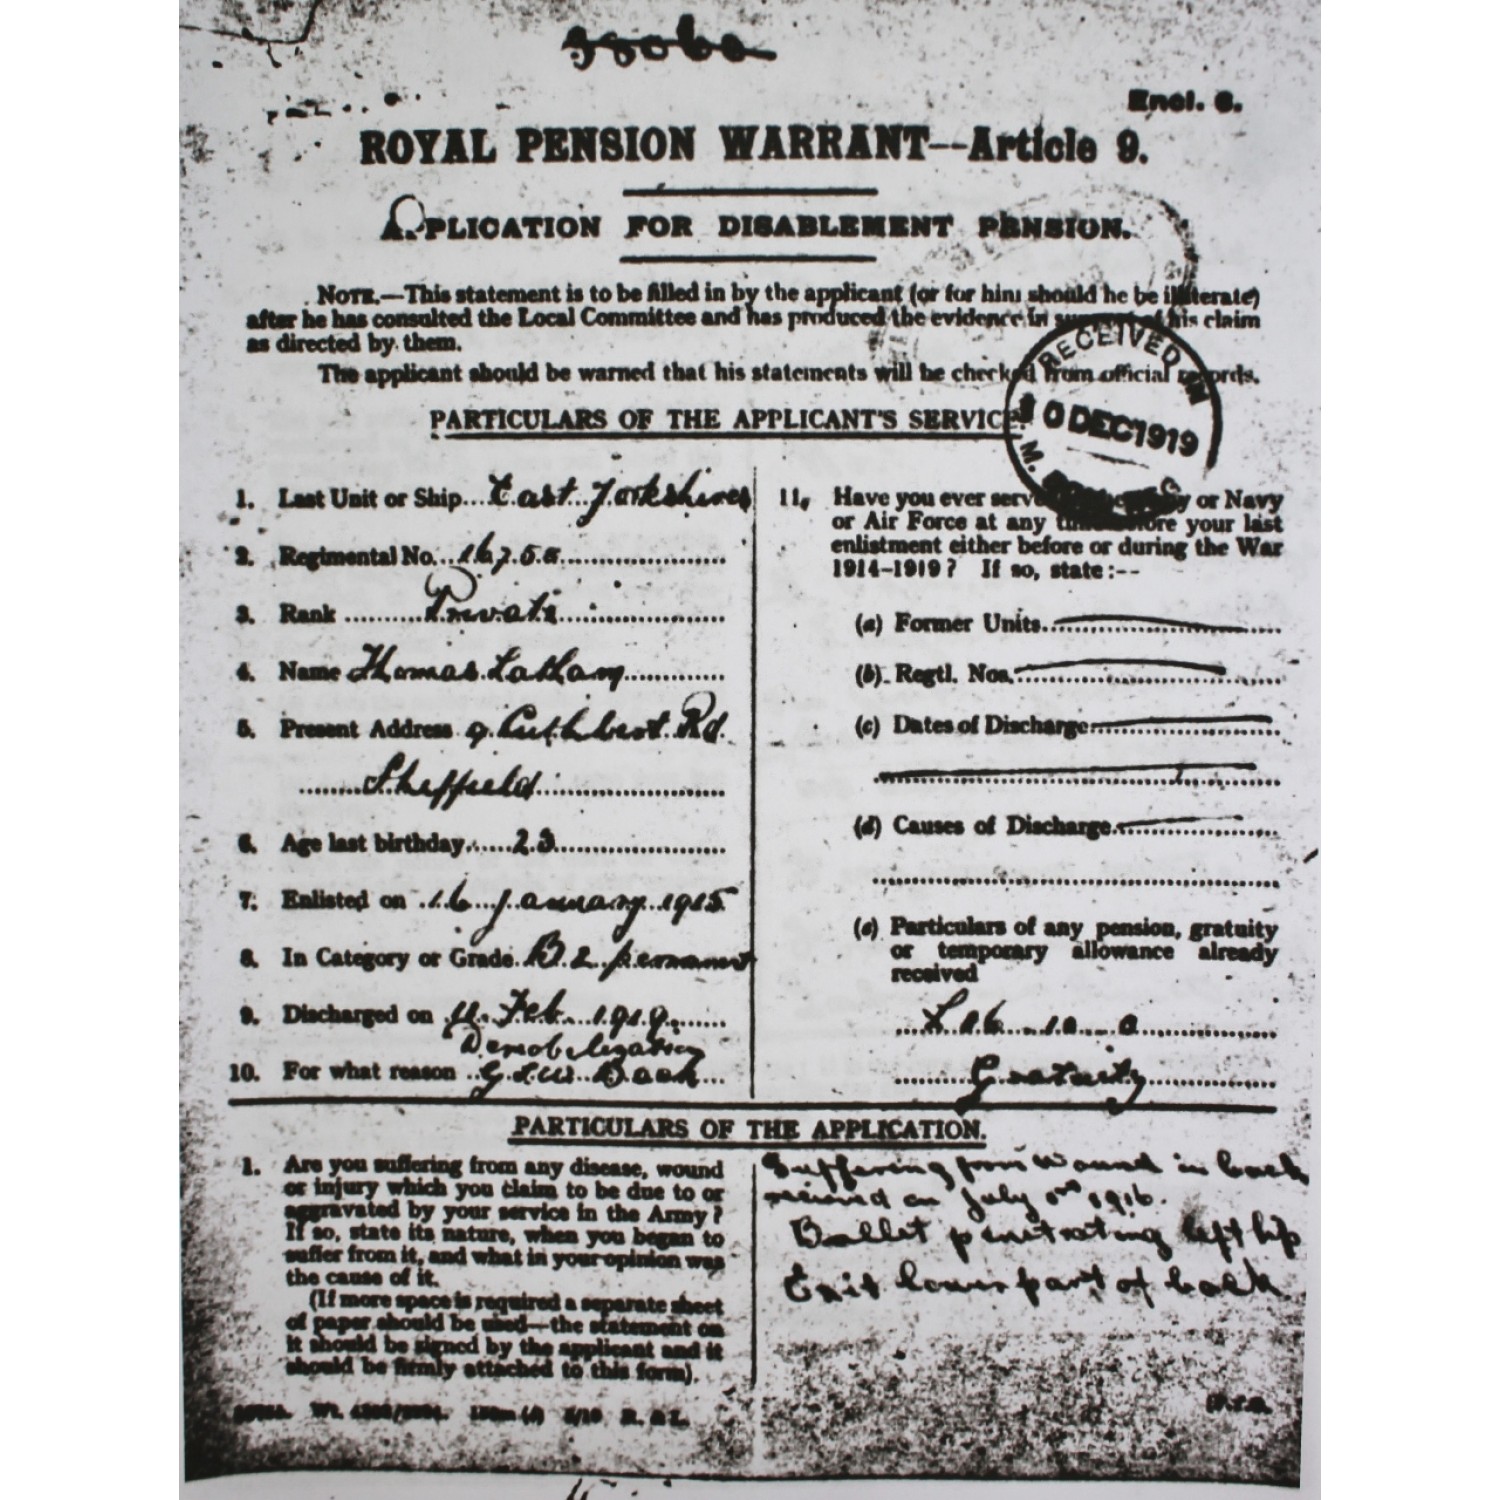 Encl. 6.
ROYAL PENSION WARRANT—Article 9.
APPLICATION FOR DISABLEMENT PENSION.
NOTE.—This statement is to be filled in by the applicant (or for him should he be illiterate)
after he has consulted the Local Committee and has produced the evidence in support of his claim
as directed by them.
The applicant should be warned that his statements will be checked from official records.
RECEIVED IN
10 DEC 1919
PARTICULARS OF THE APPLICANT'S SERVICE.
1. Last Unit or Ship East Yorkshires
2. Regimental No.
3. Rank Private
4. Name Thomas Latham
5. Present Address 9 Cuthbert Rd.
Sheffield
6. Age last birthday 23
7. Enlisted on 16 January 1915
8. In Category or Grade B 2
9. Discharged on Feb 1919
Demobilization
10. For what reason G.S.W. Back
11. Have you ever served in the Army or Navy
or Air Force at any time before your last
enlistment either before or during the War
1914–1919? If so, state:--
(a) Former Units
(b) Regtl. Nos.
(c) Dates of Discharge
(d) Causes of Discharge
(e) Particulars of any pension, gratuity
or temporary allowance already
received
£16 10 0
Gratuity
PARTICULARS OF THE APPLICATION.
1. Are you suffering from any disease, wound
or injury which you claim to be due to or
aggravated by your service in the Army?
If so, state its nature, when you began to
suffer from it, and what in your opinion was
the cause of it.
(If more space is required a separate sheet
of paper should be used—the statement on
it should be signed by the applicant and it
should be firmly attached to this form).
Suffering from Wound in back
received on July 1916.
Bullet penetrating left hip
Exit lower part of back
P.T.O.